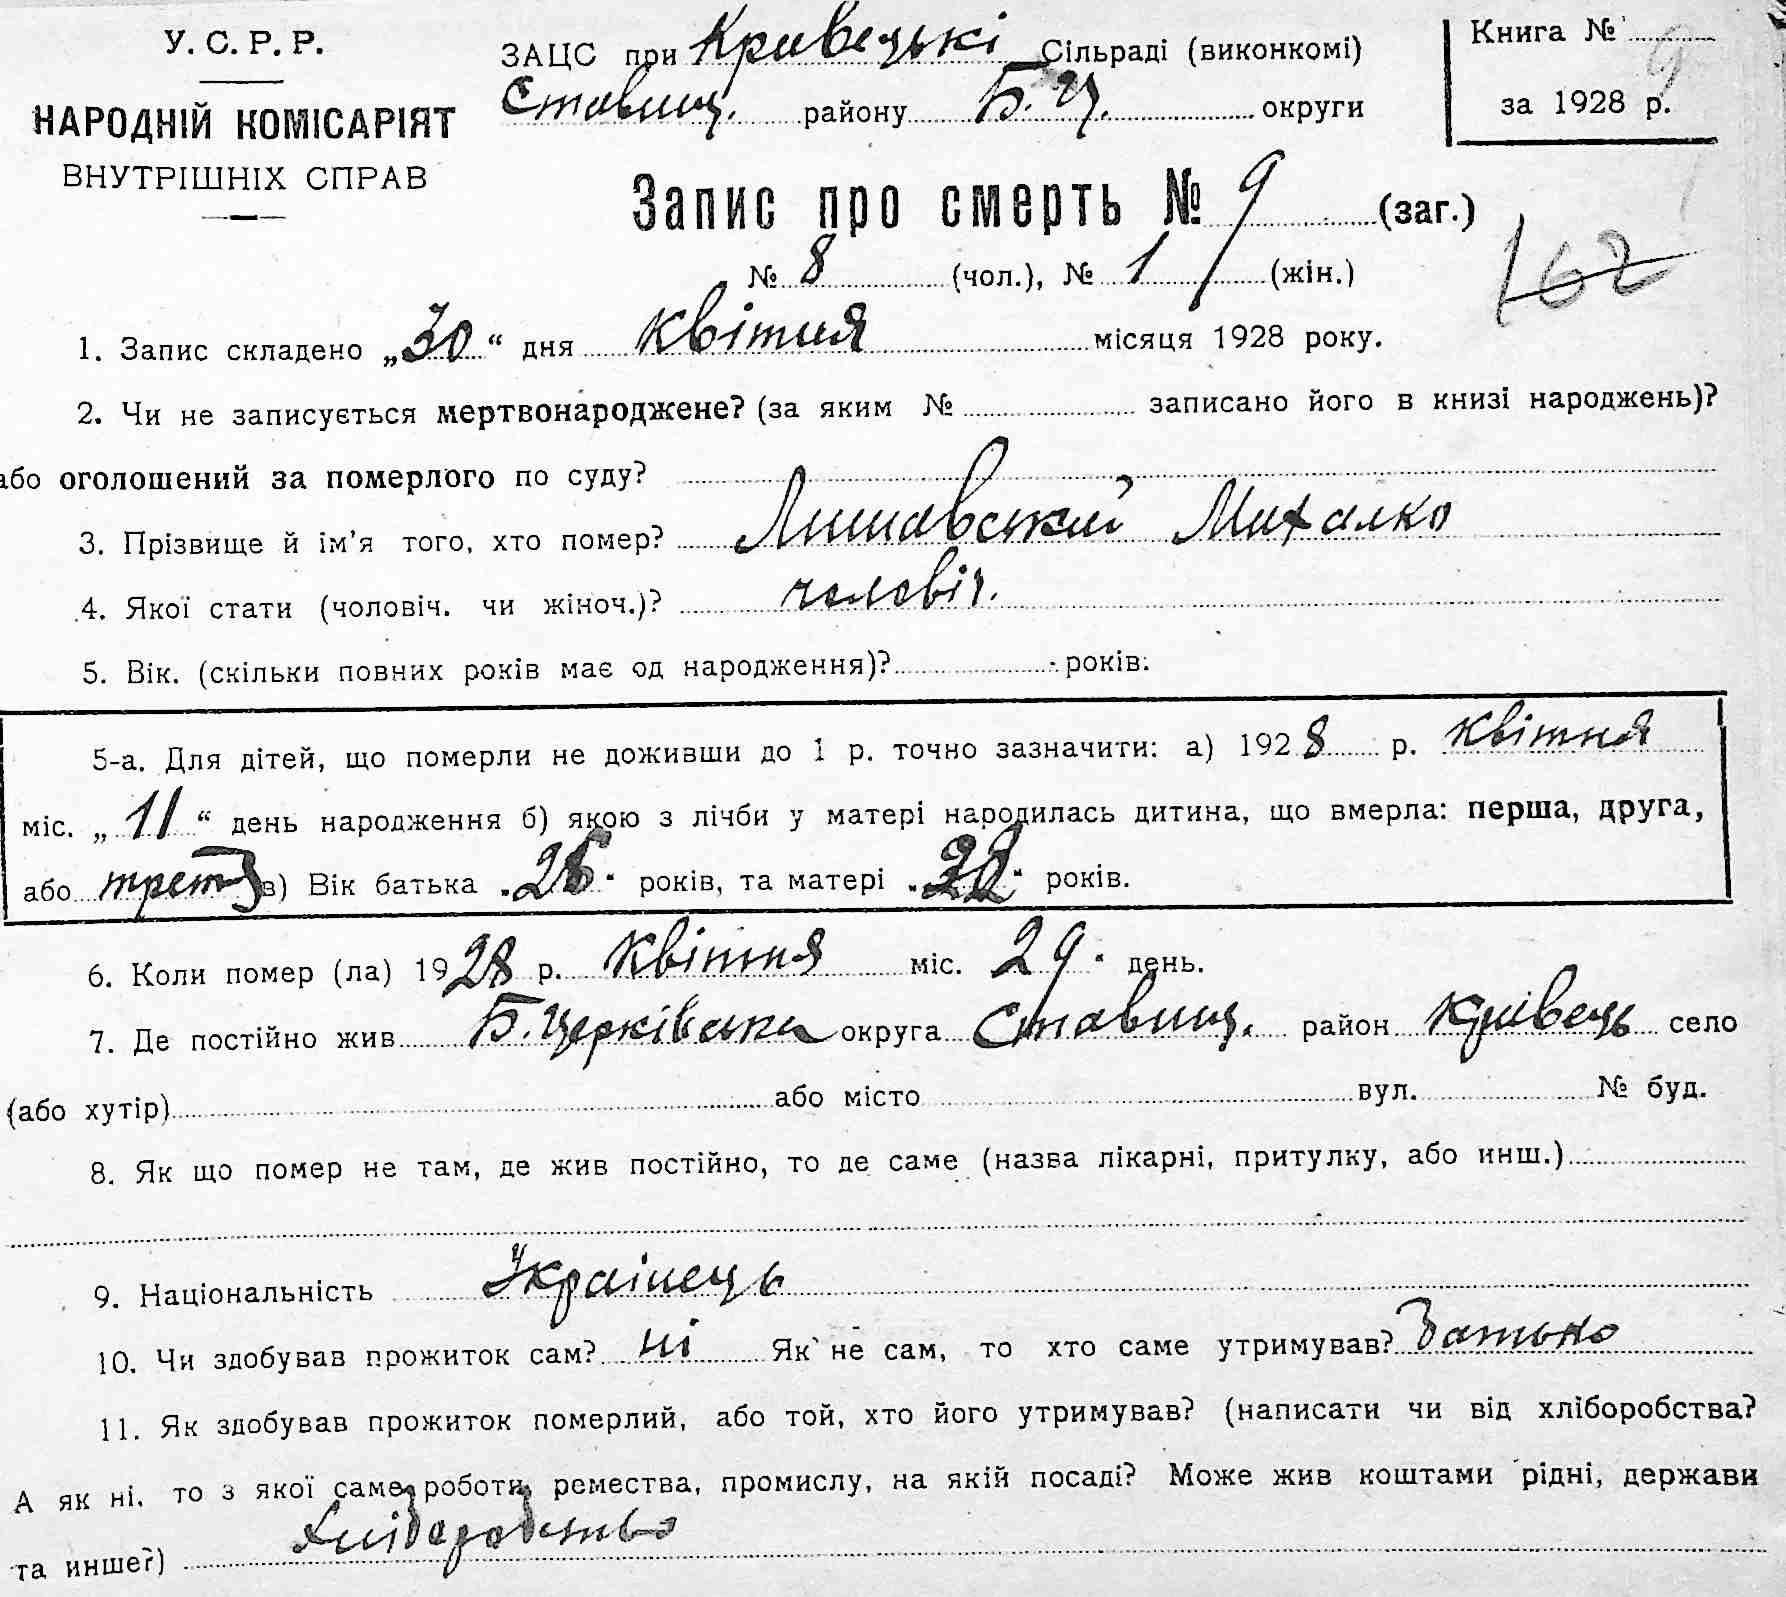 У. С. Р. Р.
НАРОДНІЙ КОМІСАРІЯТ
ВНУТРІШНІХ СПРАВ
ЗАЦС при Кривецькі Сільраді (виконкомі)
Ставищ. району Б. Ц. округи
Книга №
за 1928 р.
9
Запис про смерть № 9 (заг.)
№ 8 (чол.), № 1 (жін.)
162
1. Запис складено „30“ дня квітня місяця 1928 року.
2. Чи не записується мертвонароджене? (за яким № записано його в книзі народжень)?
або оголошений за померлого по суду?
3. Прізвище й ім'я того, хто помер? Михалко
4. Якої стати (чоловіч. чи жіноч.)? чоловіч.
5. Вік. (скільки повних років має од народження)? років.
5-а. Для дітей, що померли не доживши до 1 р. точно зазначити: а) 1928 р. квітня
міс. „11“ день народження б) якою з лічби у матері народилась дитина, що вмерла: перша, друга,
або в) Вік батька років, та матері років.
6. Коли помер (ла) 1928 р. квітня міс. 29 день.
7. Де постійно жив Б. Церківська округа Ставищ. район Кривець село
(або хутір) або місто вул. № буд.
8. Як що помер не там, де жив постійно, то де саме (назва лікарні, притулку, або инш.)
9. Національність Українець
10. Чи здобував прожиток сам? ні Як не сам, то хто саме утримував? Батько
11. Як здобував прожиток померлий, або той, хто його утримував? (написати чи від хліборобства?
А як ні, то з якої саме роботи, ремества, промислу, на якій посаді? Може жив коштами рідні, держави
та инше?) Хліборобство